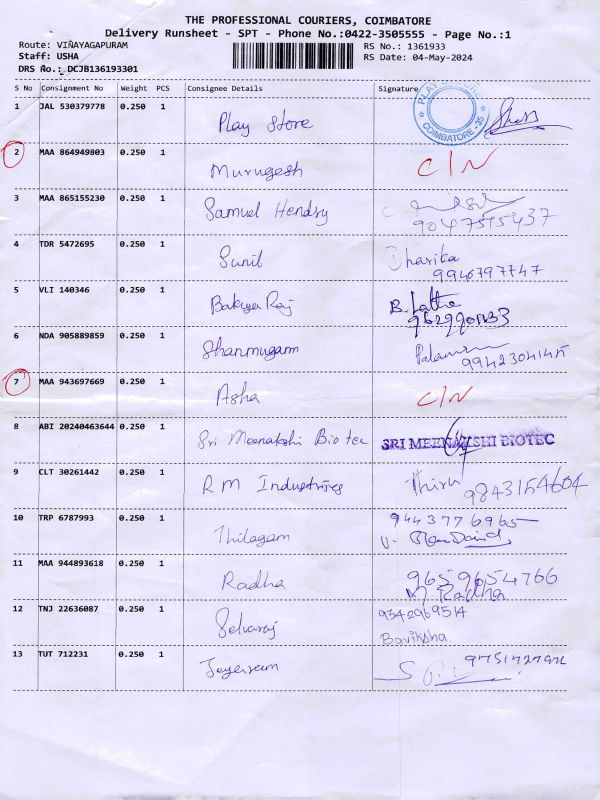 THE PROFESSIONAL COURIERS, COIMBATORE
Delivery Runsheet - SPT - Phone No.:0422-3505555 - Page No.:1
Route: VINAYAGAPURAM RS No.: 1361933
Staff: USHA RS Date: 04-May-2024
DRS No.: DCJB136193301
S No Consignment No Weight PCS Consignee Details Signature
1 JAL 530379778 0.250 1 Play Store COIMBATORE-35
2 MAA 864949803 0.250 1 Murugesh C/N
3 MAA 865155230 0.250 1 Samuel Hendry
9047595437
4 TDR 5472695 0.250 1 Sunil Dharika
9946797747
5 VLI 140346 0.250 1 Bakya Raj B. Latha
6 NDA 905889859 0.250 1 Shanmugam
7 MAA 943697669 0.250 1 Asha C/N
8 ABI 20240463644 0.250 1 Sri Meenakshi Bio tec SRI MEENAKSHI BIOTEC
9 CLT 30261442 0.250 1 R M Industries Thiru
9843154604
10 TRP 6787993 0.250 1 Thilagam 9443776965
11 MAA 944893618 0.250 1 Radha 9659654766
M Radha
12 TNJ 22636087 0.250 1 Selvaraj 9342969514
Baviksha
13 TUT 712231 0.250 1 Jeyaram